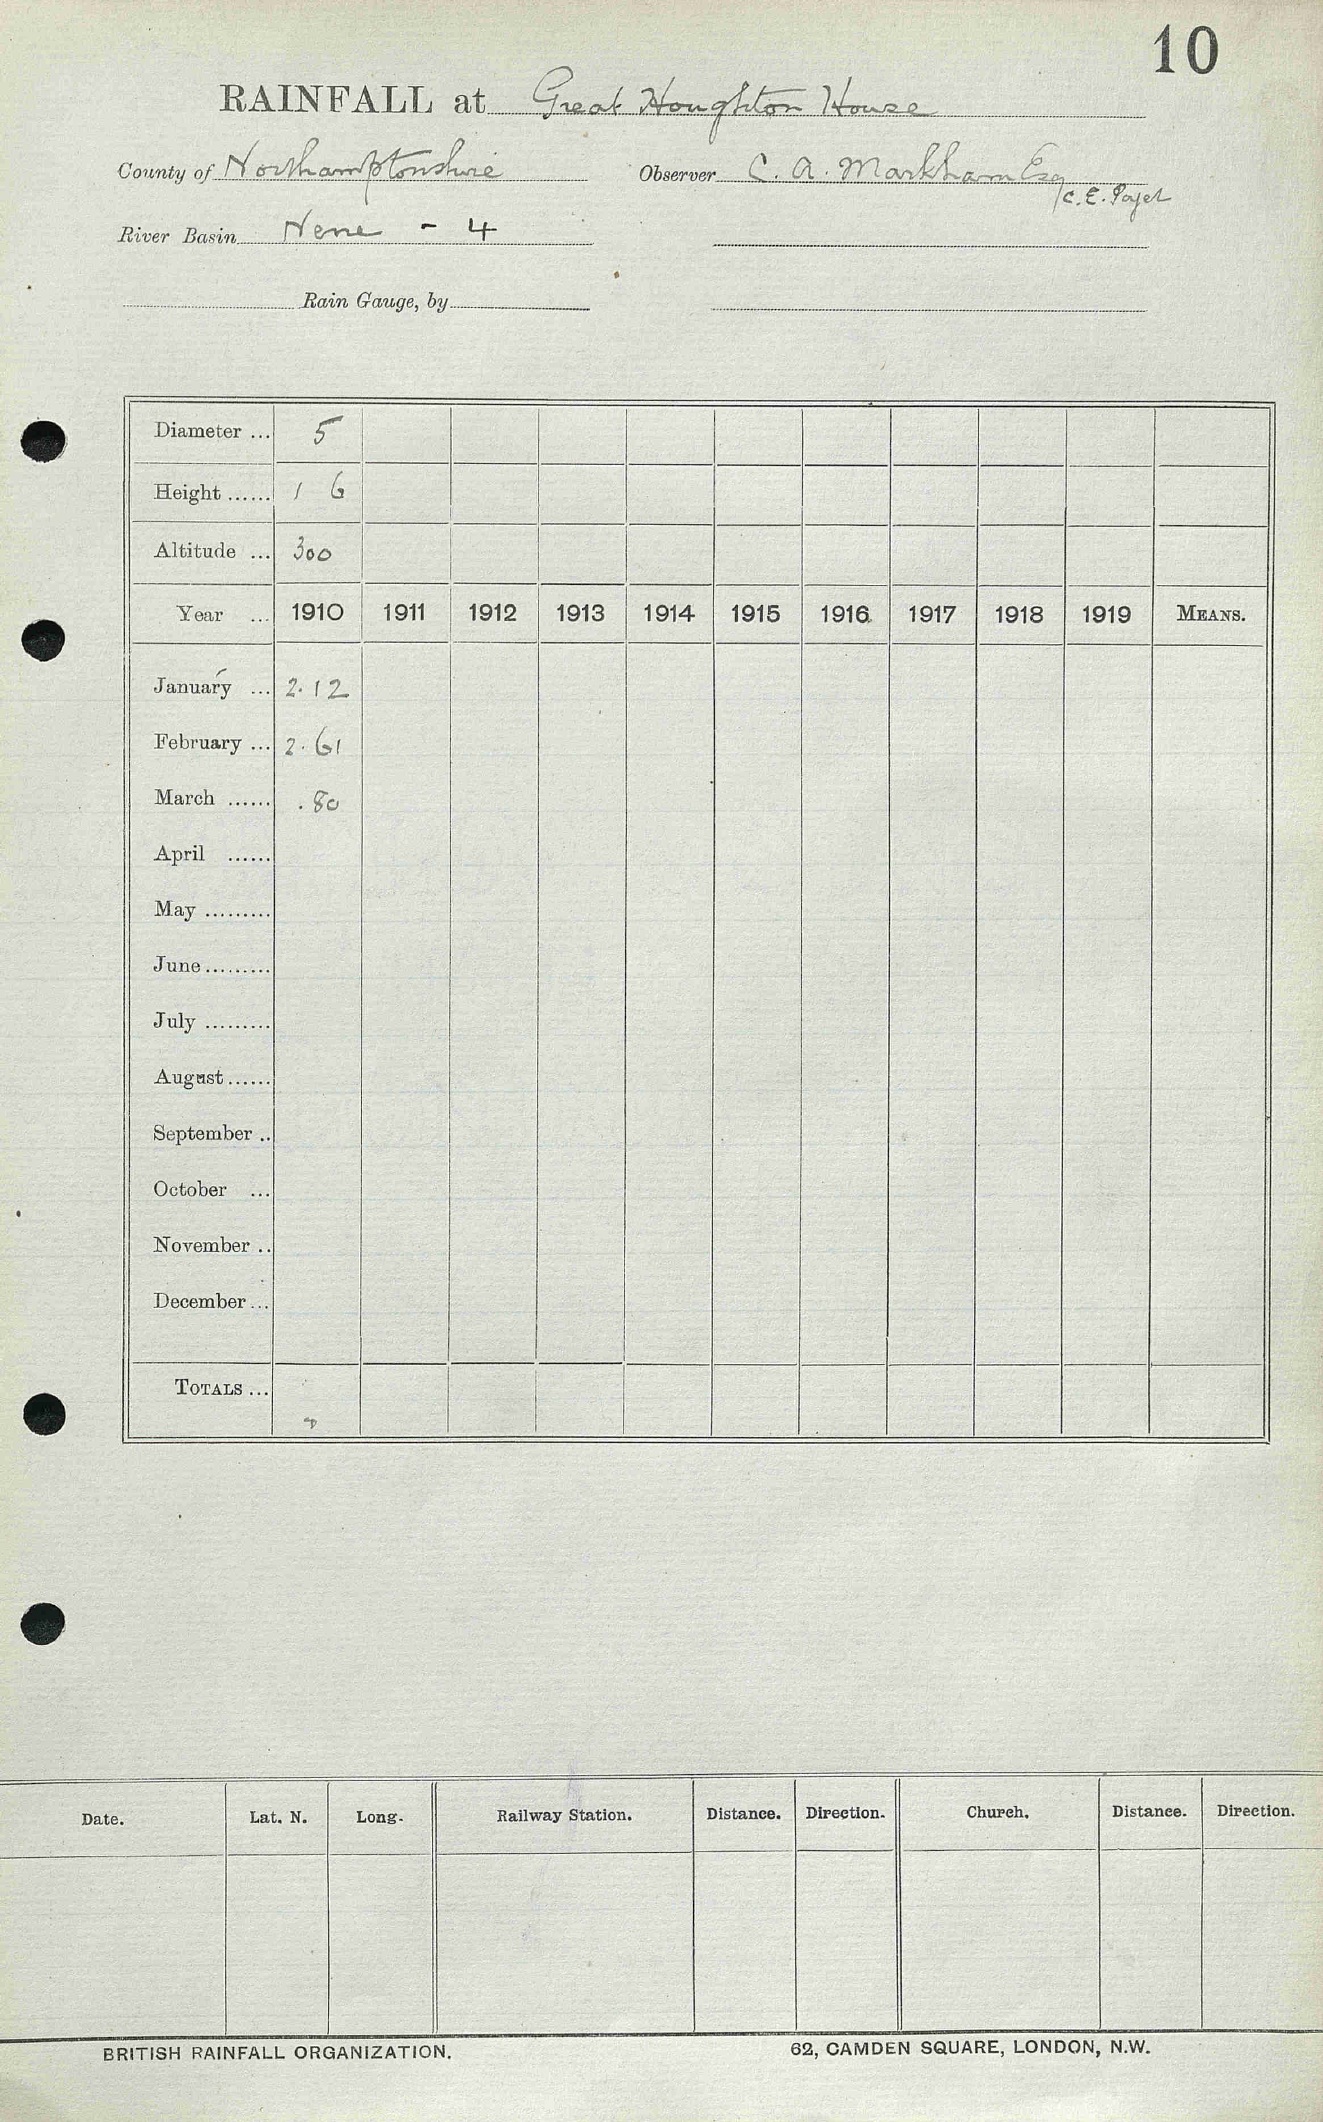 10
RAINFALL at Great Houghton House
County of Northamptonshire Observer C. A. Markham Esq
/C. E. Paget
River Basin Nene - 4
Rain Gauge, by
Diameter ... 5
Height ...... 1 6
Altitude ... 300
Year ... 1910 1911 1912 1913 1914 1915 1916 1917 1918 1919 MEANS.
January ... 2.12
February ... 2.61
March ...... .80
April ......
May .........
June .........
July .........
August ......
September ..
October ...
November ..
December ...
TOTALS ...
Date. Lat. N. Long. Railway Station. Distance. Direction. Church. Distance. Direction.
BRITISH RAINFALL ORGANIZATION. 62, CAMDEN SQUARE, LONDON, N.W.